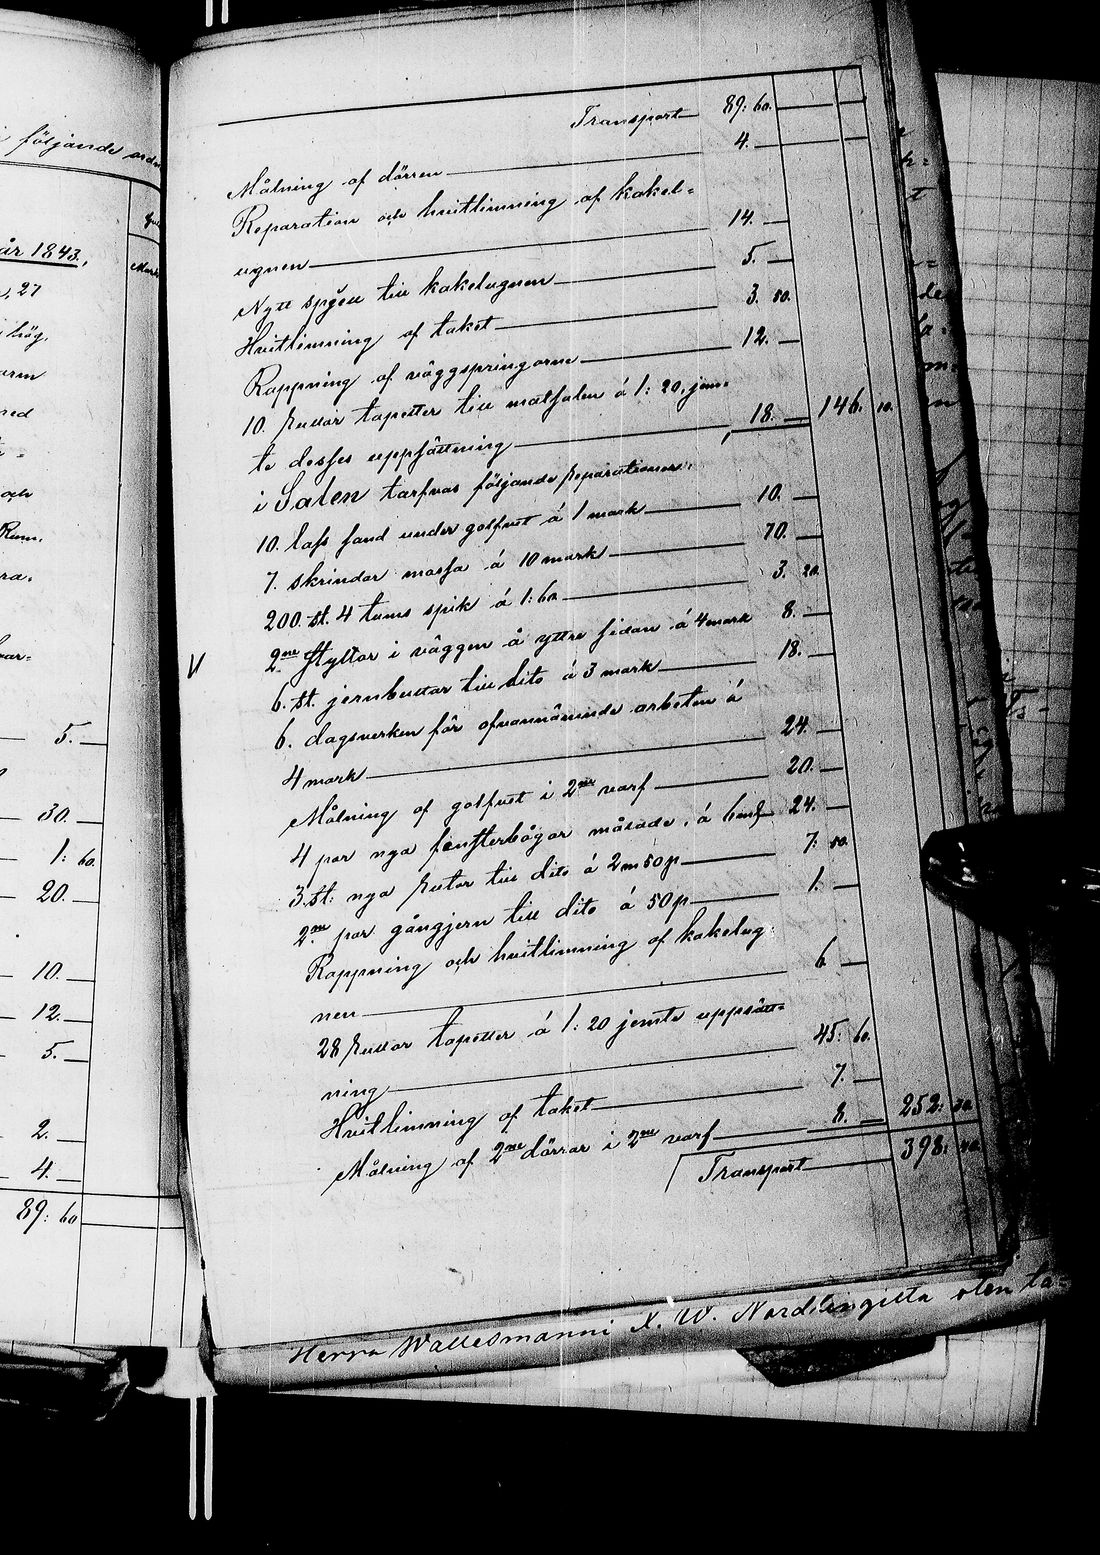 följande ord
år 1843.,
5. —
30. —
1: 60.
20. —
10. —
12. —
5. —
2. —
4. —
89: 60
Transport 89: 60.
Målning af dörren 4. —
Reparation och hvitlimning af kakel=
ugnen 14. —
Nytt spjell till kakelugnen 5. —
Hvitlimning af taket 3. 50.
Rappning af väggspringorna 12. —
10. rullar tapetter till matsalen á 1: 20, jem=
te desses uppsättning 18. — 146. 10.
i Salen tarfvas följande reparationer:
10. lass sand under golfvet á 1 mark 10. —
7. skrindor mossa á 10 mark 70. —
200. st. 4 tums spik á 1: 60 3. 20.
2ne Styltor i väggen å yttre sidan á 4 mark 8. —
6. st. jernbultar till dito á 3 mark 18. —
6. dagsverken för ofvannämnde arbeten á
4 mark 24. —
Målning af golfvet i 2ne varf 20. —
4 par nya fensterbågar målade, á 6 mk 24. —
3. st: nya rutor till dito á 2 m 50 p 7: 50.
2ne par gångjern till dito á 50 p 1. —
Rappning och hvitlimning af kakelug
nen 6 —
28 rullar tapetter á 1: 20 jemte uppsätt=
ning 45: 60.
Hvitlimning af taket 7. —
Målning af 2ne dörrar i 2ne varf 8. — 252: 30.
Transport 398: 40.
Herra Wallesmanni K. W. Nordlingilta olen la=